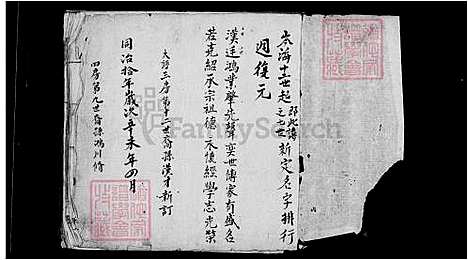 六海十一世起 即此譜之七世 新定名字排行
迥復元
漢廷鴻業肇先聲奕世傳家有盛名
若克紹承宗祖德永懷經學志光榮
大詩三房第十二世裔孫漢才新訂
同治拾年歲次辛未年四月
四房第九世裔孫鴻川修
FamilySearch